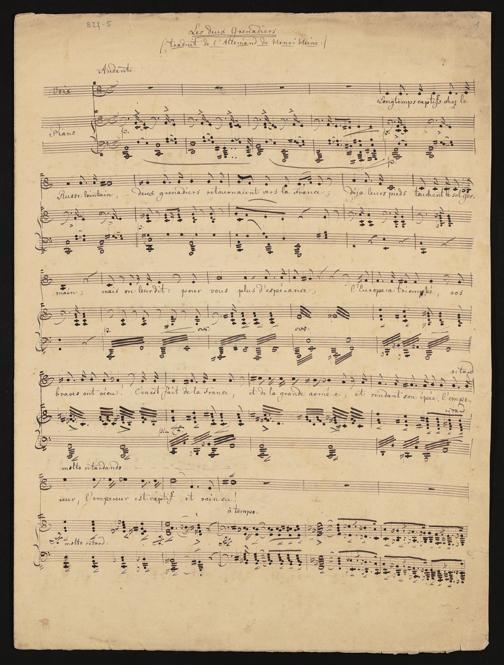 821-5
1
Les deux Grenadiers
(Traduit de l'Allemand de Henri Heine.)
Andante
Voix
Longtemps captifs chez le
Piano
Russe lointain, deux grenadiers retournaient vers la France; Déjà leurs pieds touchent le sol ger-
main; mais on leur dit: pour vous plus d'espérance; l'Europe a triomphé, vos
braves ont vécu! C'en est fait de la France, et de la grande armée, et rendant son épée, l'empe-
ritard
molto ritardando
reur, l'empereur est captif et vaincu!
a tempo.
molto ritard